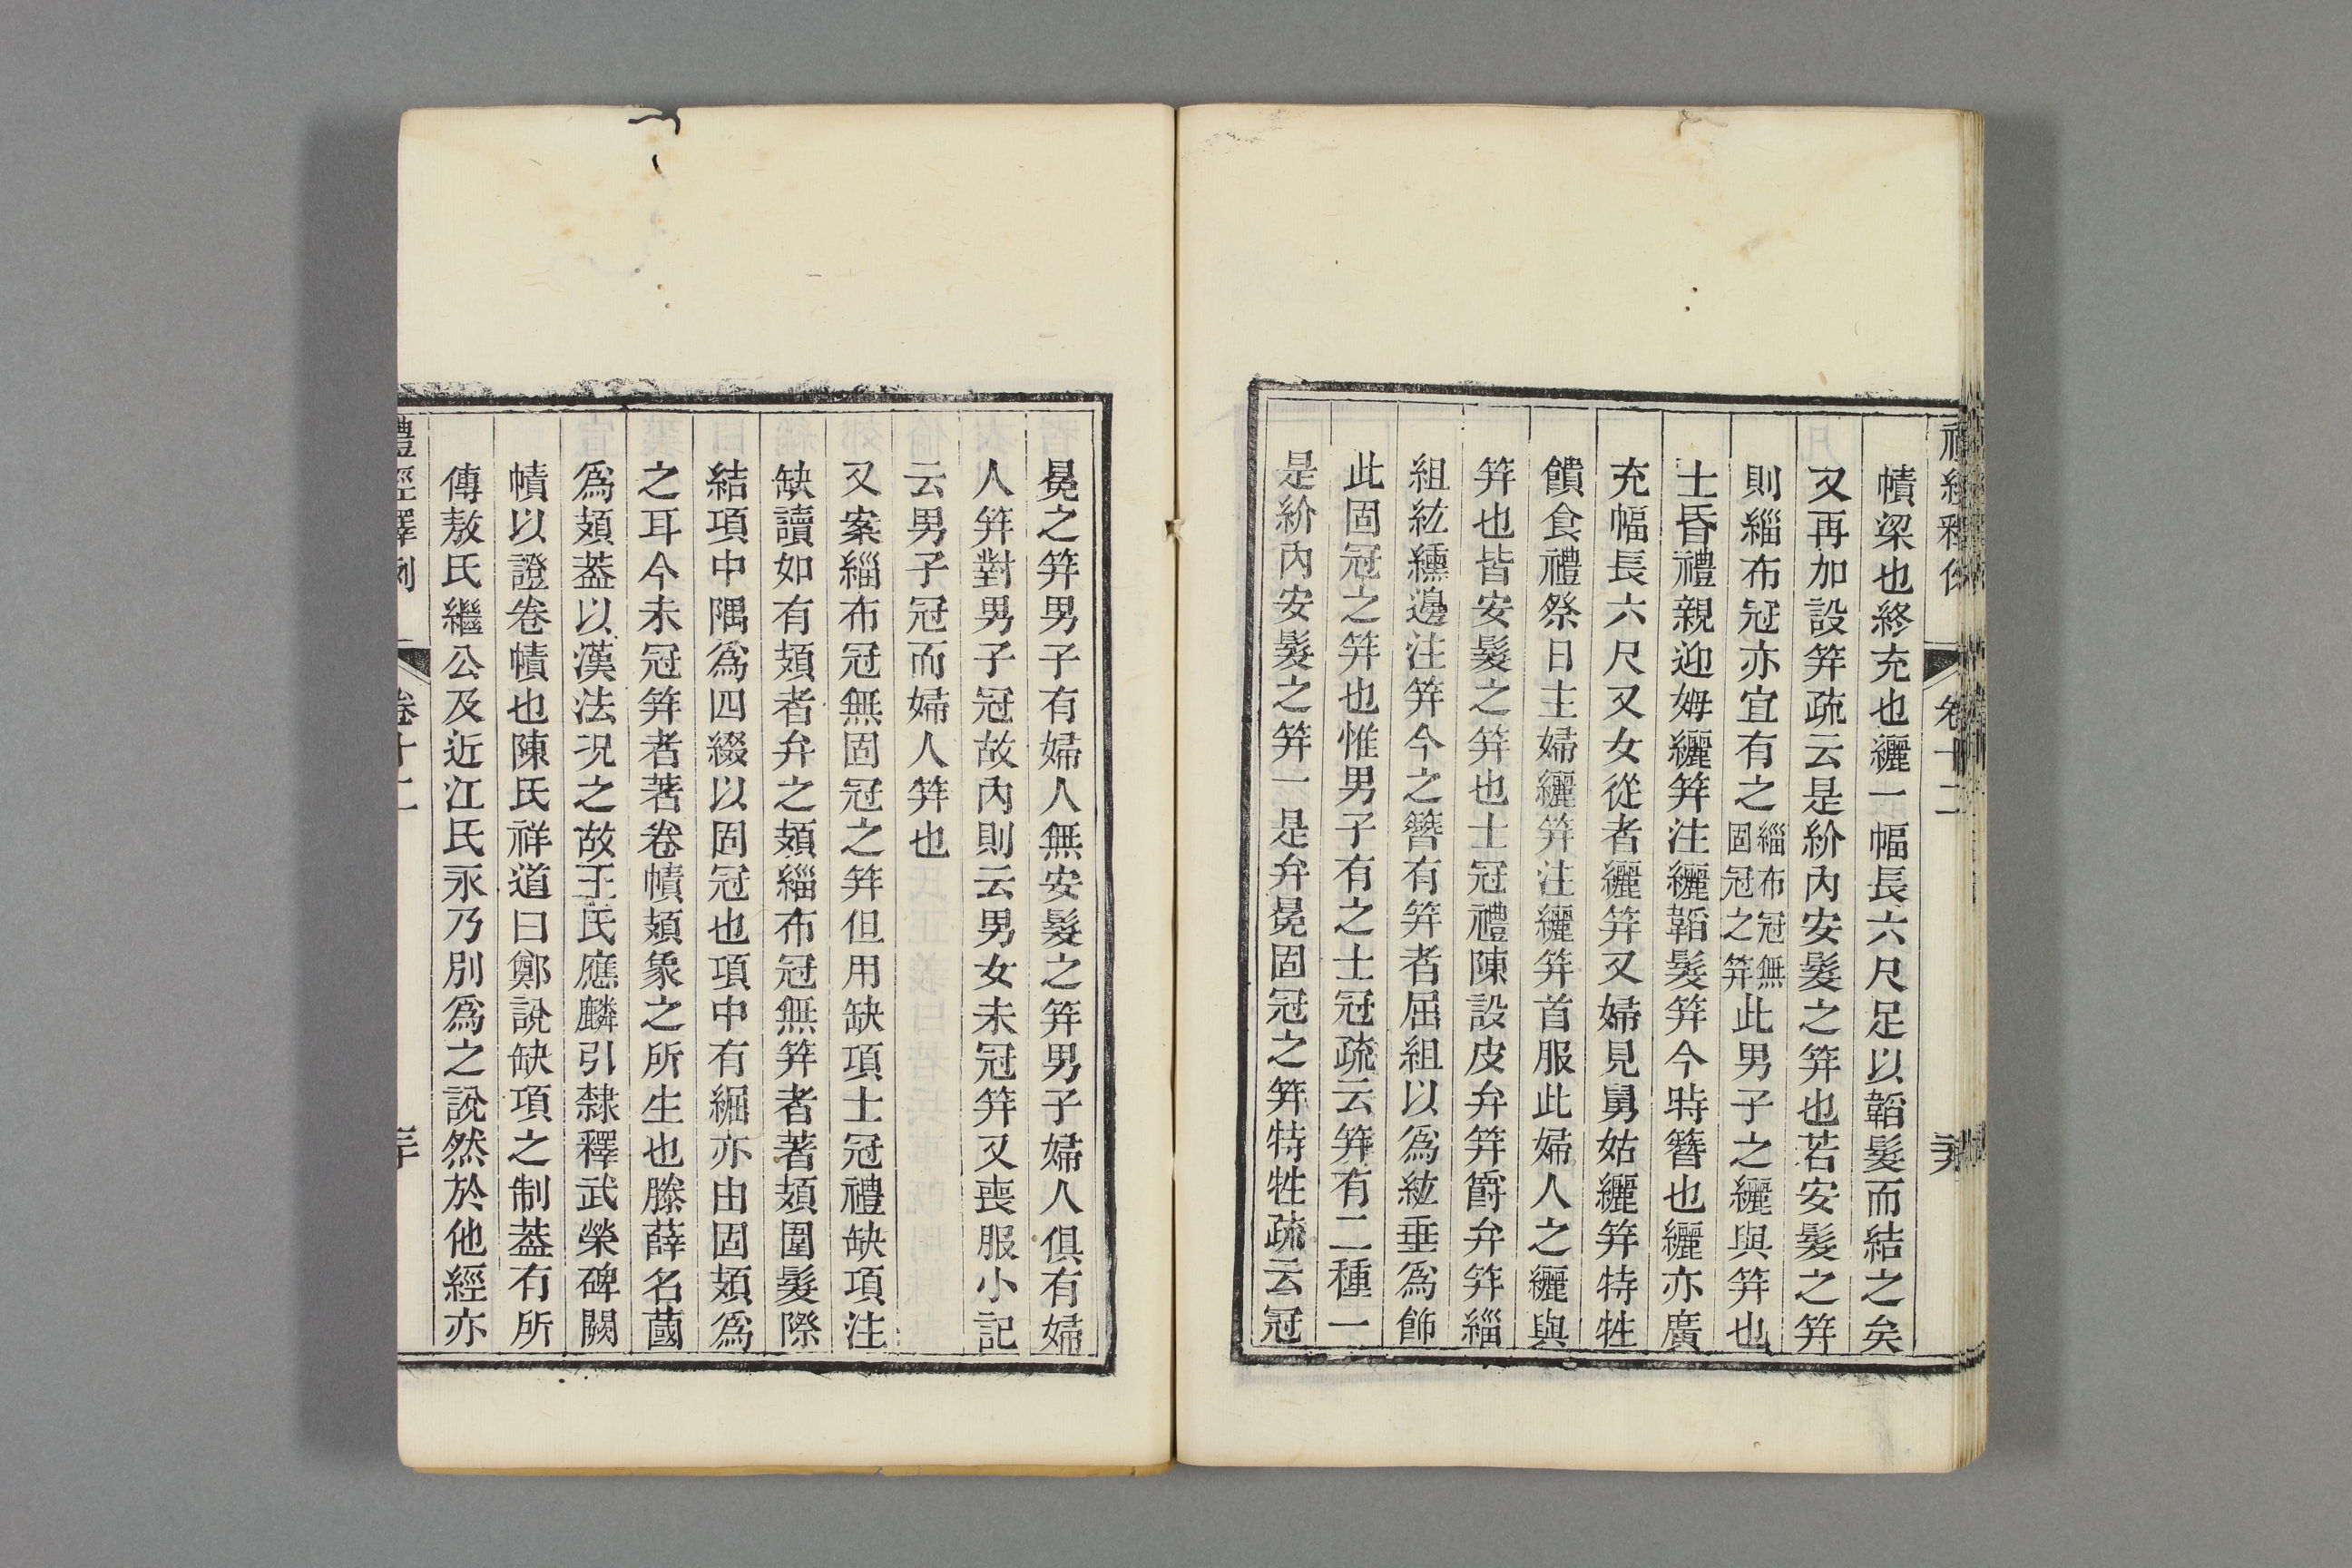 幘梁也終充也纚一幅長六尺足以韜髮而結之矣
又再加設筓疏云是紒內安髮之筓也若安髮之筓
則緇布冠亦宜有之緇布冠無固冠之筓此男子之纚與筓也
士昏禮親迎姆纚筓注纚韜髮筓今時簪也纚亦廣
充幅長六尺又女從者纚筓又婦見舅姑纚筓特牲
饋食禮祭日主婦纚筓注纚筓首服此婦人之纚與
筓也皆安髮之筓也士冠禮陳設皮弁筓爵弁筓緇
組紘纁邊注筓今之簪有筓者屈組以爲紘垂爲飾
此固冠之筓也惟男子有之士冠疏云筓有二種一
是紒內安髮之筓一是弁冕固冠之筓特牲疏云冠
冕之筓男子有婦人無安髮之筓男子婦人俱有婦
人筓對男子冠故內則云男女未冠筓又喪服小記
云男子冠而婦人筓也
又案緇布冠無固冠之筓但用缺項士冠禮缺項注
缺讀如有頍者弁之頍緇布冠無筓者著頍圍髮際
結項中隅爲四綴以固冠也項中有𦁐亦由固頍爲
之耳今未冠筓者著卷幘頍象之所生也滕薛名蔮
爲頍葢以漢法況之故王氏應麟引隸釋武榮碑闕
幘以證卷幘也陳氏祥道曰鄭說缺項之制葢有所
傳敖氏繼公及近江氏永乃別爲之說然於他經亦
禮經釋例 卷十二